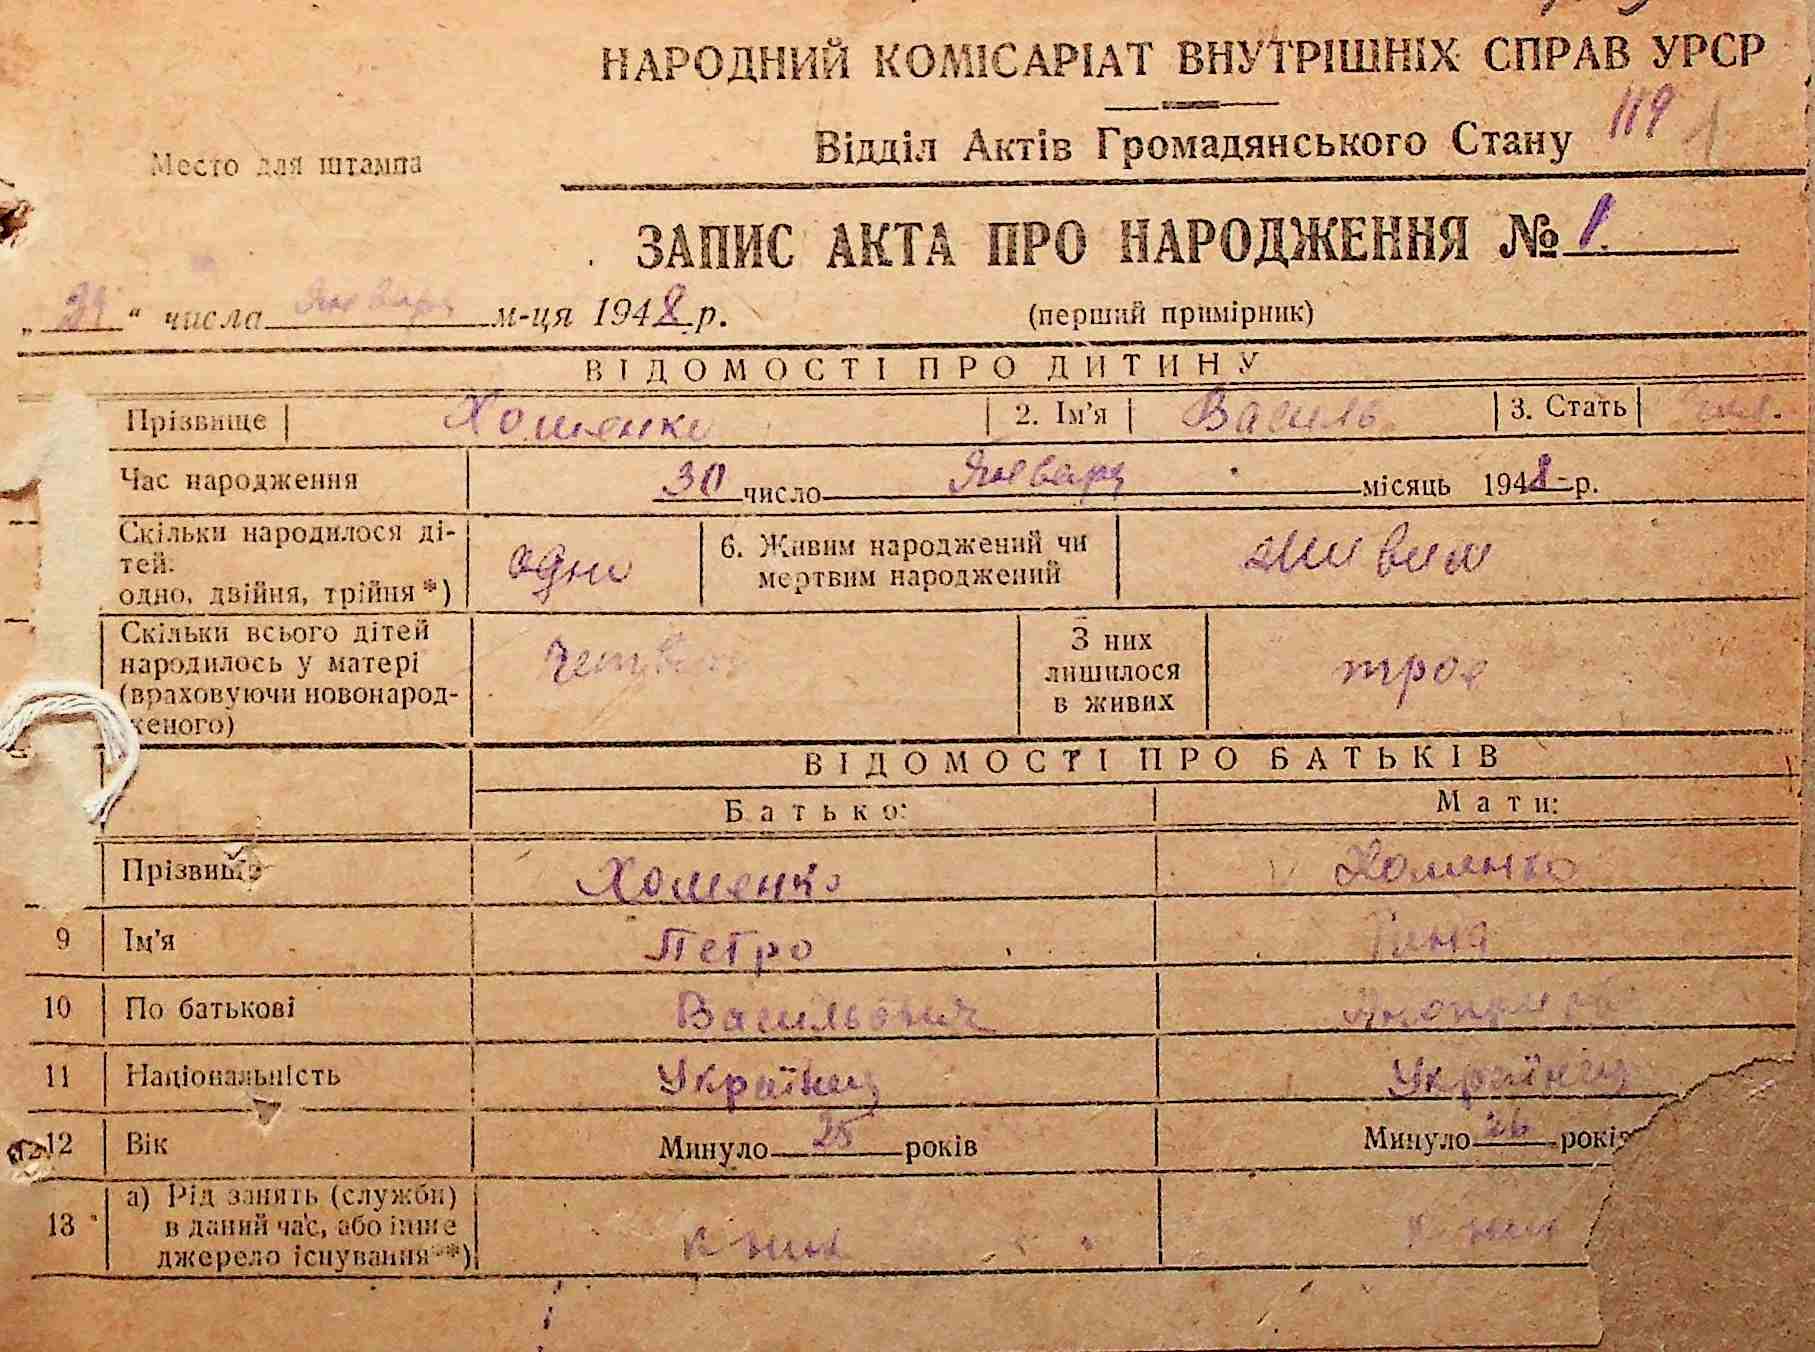 НАРОДНИЙ КОМІСАРІАТ ВНУТРІШНІХ СПРАВ УРСР
119
Відділ Актів Громадянського Стану
Место для штампа
ЗАПИС АКТА ПРО НАРОДЖЕННЯ № 1.
„ “ числа Января м-ця 1948 р. (перший примірник)
ВІДОМОСТІ ПРО ДИТИНУ
Прізвище Хоменко 2. Ім’я Василь 3. Стать
Час народження 30 число Января місяць 1948 р.
Скільки народилося ді-
тей:
одно, двійня, трійня*) одно 6. Живим народжений чи
мертвим народжений живим
Скільки всього дітей
народилось у матері
(враховуючи новонарод-
женого) З них
лишилося
в живих трое
ВІДОМОСТІ ПРО БАТЬКІВ
Батько: Мати:
Прізвище Хоменко Хоменко
9 Ім’я Петро
10 По батькові Васильович
11 Національність Українец Українец
12 Вік Минуло 25 років Минуло 26 років
13 а) Рід занять (служби)
в даний час, або інше
джерело існування**)